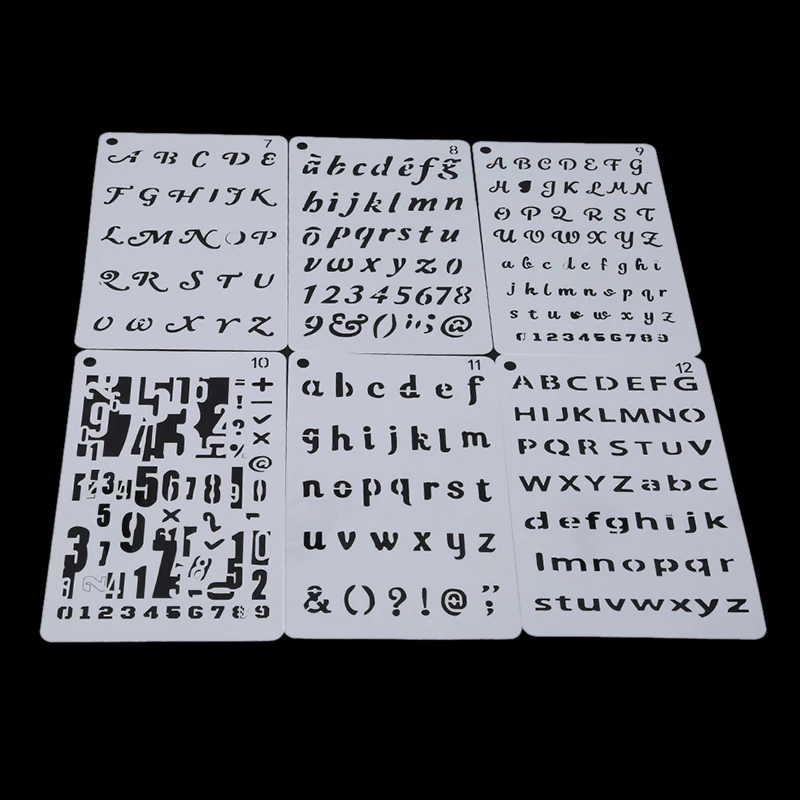 7
A B C D E
F G H I J K
L M N O P
Q R S T U
V W X Y Z
8
à b c d é f g
h i j k l m n
ō p q r s t u
v w x y z ()
1 2 3 4 5 6 7 8
9 & ( ) ! ; @
9
A B C D E F G
H I J K L M N
O P Q R S T
U V W X Y Z
a b c d e f g h i
j k l m n o p q r
s t u v w x y z
0 1 2 3 4 5 6 7 8 9
10
+
! −
?
× 
% @
1 2 3 4 5 6 7 8 9 0
5 9 ×
3 7
2 4 1 5 2
0 1 2 3 4 5 6 7 8 9
11
a b c d e f
g h i j k l m
n o p q r s t
u v w x y z
& ( ) ? ! @ ;
12
A B C D E F G
H I J K L M N O
P Q R S T U V
W X Y Z a b c
d e f g h i j k
l m n o p q r
s t u v w x y z